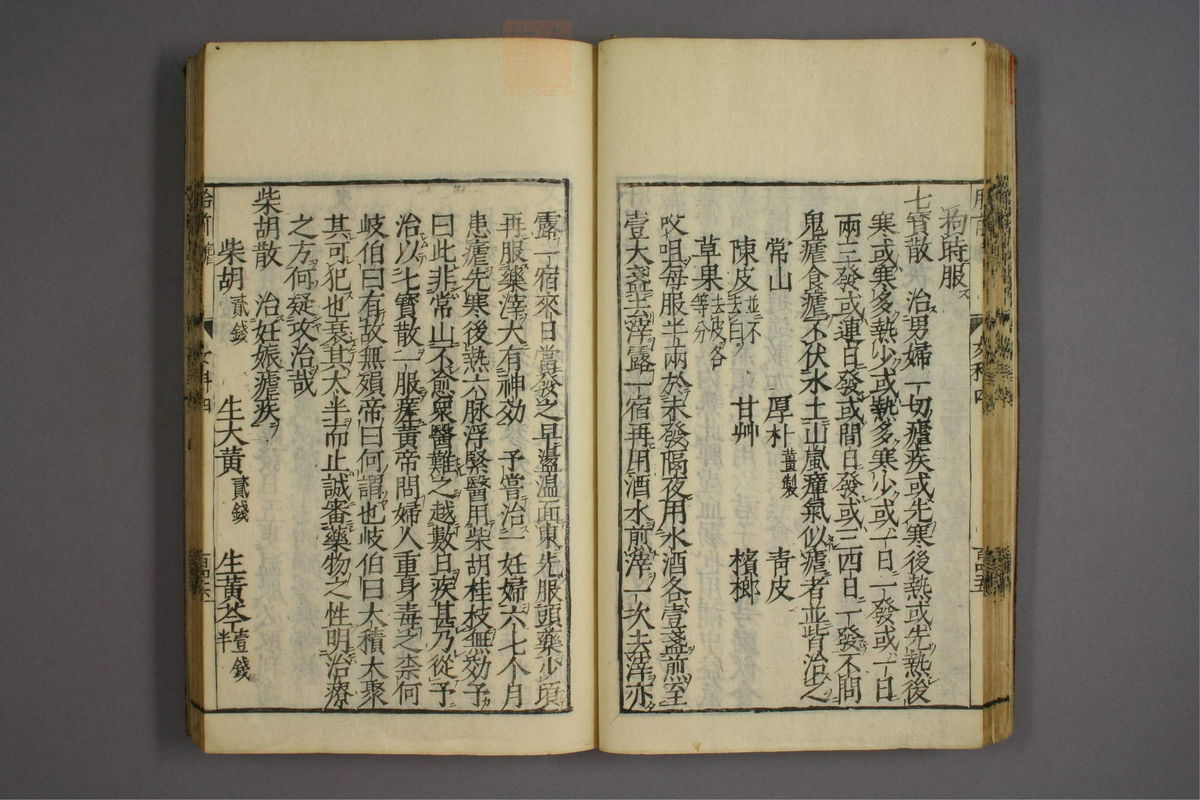 拘時服
七寳散　治男婦一切瘧疾或先寒後熱或先熱後
寒或寒多熱少或熱多寒少或一日一發或一日
兩三發或連日發或間日發或三四日一發不問
鬼瘧食瘧不伏水土山嵐瘴氣似瘧者並皆治之
常山　厚朴薑製　青皮
陳皮並不去白　甘艸　檳榔
草果去皮各等分
㕮咀每服半兩於未發隔夜用水酒各壹盞煎至
壹大盞去滓露一宿再用酒水煎滓一次去滓亦
露一宿來日當發之早盪溫面東先服頭藥少頃
再服藥滓大有神効　予嘗治一妊婦六七个月
患瘧先寒後熱六脉浮緊醫用柴胡桂枝無効予
曰此非常山不愈衆醫難之越數日疾甚乃從予
治以七寳散一服瘥黃帝問婦人重身毒之柰何
岐伯曰有故無殞帝曰何謂也岐伯曰大積大聚
其可犯也衰其太半而止誠審藥物之性明治療
之方何疑攻治哉
柴胡散　治妊娠瘧疾
柴胡貳錢　生大黃貳錢　生黃芩壹錢半